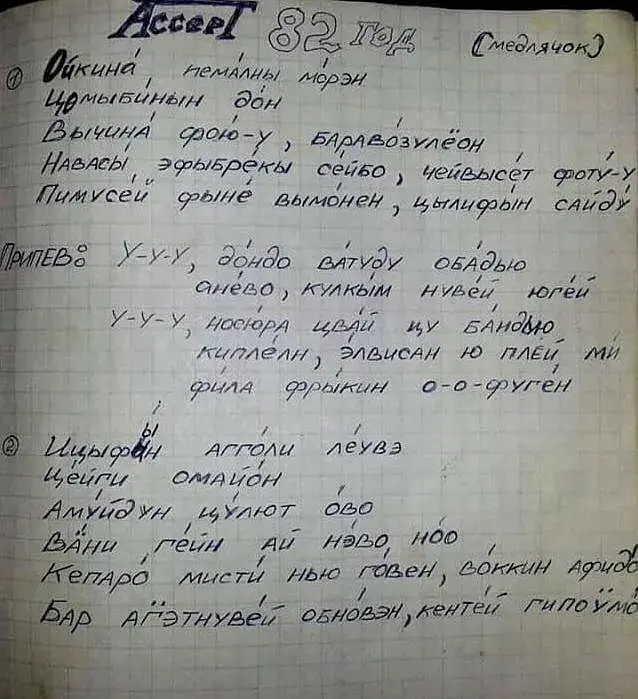 АссерТ 82 год (медлячок)
① Ойкина́, нема́лны мо́рэн
Цомыби́нын до́н
Вычина́ фою́-у, бараво́зулёон
Навасы́, эфыбре́кы се́йбо, чейвысе́т фоту́-у
Пимусе́й фыне́ вымо́нен, цылифы́н сайду́
Припев: У-у-у, до́ндо ва́туду оба́дью
ане́во, кулкы́м нуве́й юге́й
У-у-у, носю́ра цва́й цу ба́ндью
кипле́лн, э́лвисан ю пле́й ми
фи́ла фры́кин о-о-фуге́н
② Ицыфы́н агго́ли ле́увэ
Це́йги омайо́н
Аму́йдун цу́лют о́во
Ва́ни ге́йн ай нэ́во но́о
Кепаро́ мисти́ нью го́вен, во́ккин афидо
Бар агэтнуве́й обно́вэн, кенте́й гипоумо́